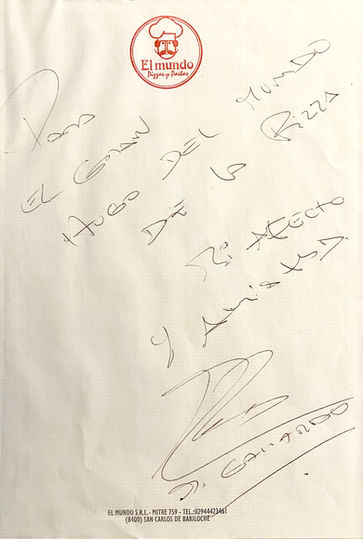 El mundo
Pizzas y Pastas
Para
EL GRAN
HUGO DEL MUNDO
DE LA PIZZA.
Mi AFECTO
Y AMISTAD.
M. GALLARDO
EL MUNDO S.R.L.- MITRE 759 - TEL.:02944423461
(8400) SAN CARLOS DE BARILOCHE